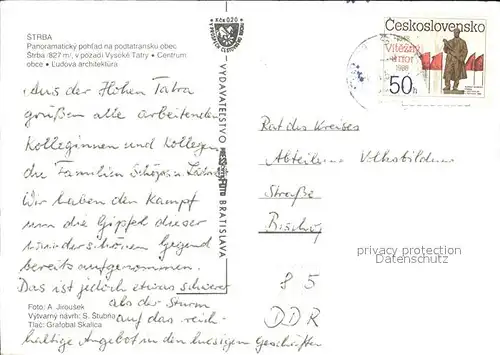 ŠTRBA
Panoramatický pohľad na podtatranskú obec
Štrba /827 m/, v pozadí Vysoké Tatry • Centrum
obce • Ľudová architektúra
Aus der Hohen Tatra
grüßen alle arbeitenden
Kolleginnen und Kollegen
die Familien
Wir haben den Kampf
um die Gipfel dieser
wunderschönen Gegend
bereits aufgenommen.
Das ist jedoch etwas schwerer
als der Sturm
auf das reich-
haltige Angebot in den hiesigen Geschäften
Foto: A. Jiroušek
Výtvarný návrh: S. Štubňa
Tlač: Grafobal Skalica
Kčs 0,20
VYDAVATEĽSTVO
BRATISLAVA
Československo
Vítězný
únor
1988
50h
Rat des Kreises
Abteilung Volksbildung
Straße
85
DDR
privacy protection
Datenschutz